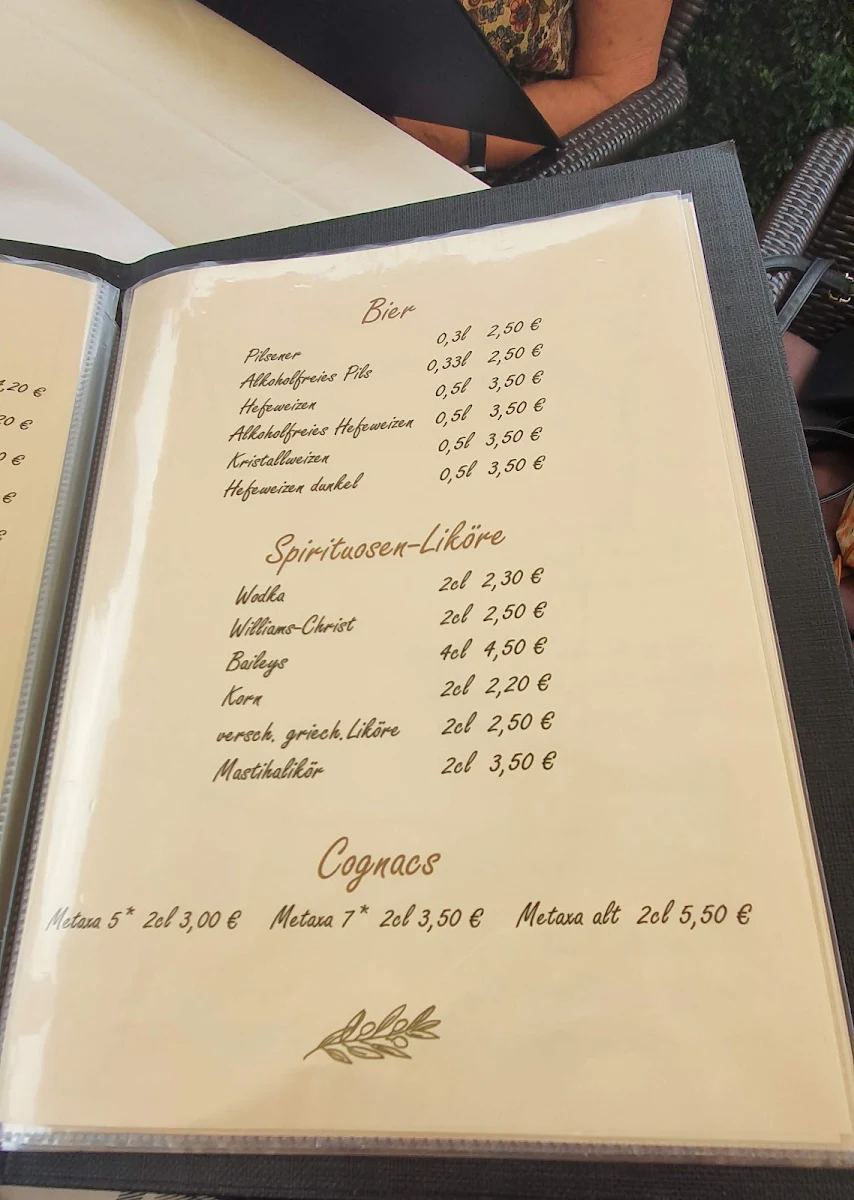 ,20 €
20 €
€
€
€
Bier
Pilsener 0,3l 2,50 €
Alkoholfreies Pils 0,33l 2,50 €
Hefeweizen 0,5l 3,50 €
Alkoholfreies Hefeweizen 0,5l 3,50 €
Kristallweizen 0,5l 3,50 €
Hefeweizen dunkel 0,5l 3,50 €
Spirituosen-Liköre
Wodka 2cl 2,30 €
Williams-Christ 2cl 2,50 €
Baileys 4cl 4,50 €
Korn 2cl 2,20 €
versch. griech.Liköre 2cl 2,50 €
Mastihalikör 2cl 3,50 €
Cognacs
Metaxa 5* 2cl 3,00 € Metaxa 7* 2cl 3,50 € Metaxa alt 2cl 5,50 €